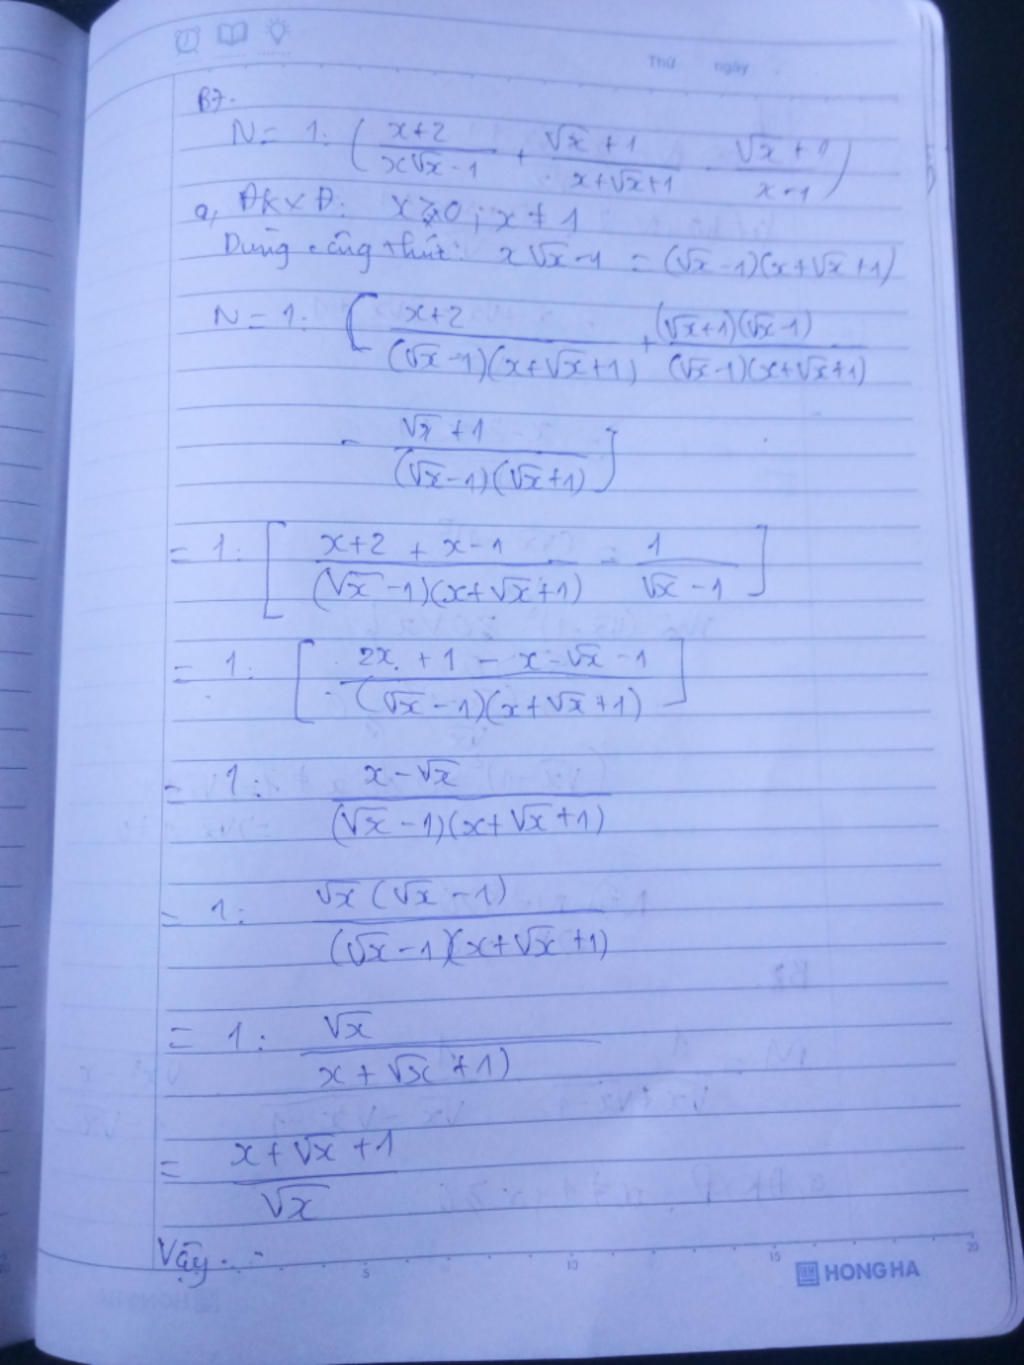 Thứ ngày
B7.
N = 1 : ( x+2 / x√x - 1 + √x + 1 / x+√x+1 - √x + 1 / x - 1 )
a, ĐKXĐ: x ≥ 0 ; x ≠ 1
Dùng công thức: x√x - 1 = (√x - 1)(x+√x+1)
N = 1 : [ x+2 / (√x - 1)(x+√x+1) + (√x+1)(√x-1) / (√x-1)(x+√x+1)
- √x + 1 / (√x-1)(√x+1) ]
= 1 : [ x+2 + x-1 / (√x - 1)(x+√x+1) - 1 / √x - 1 ]
= 1 : [ 2x + 1 - x - √x - 1 / (√x - 1)(x+√x+1) ]
= 1 : x - √x / (√x - 1)(x+√x+1)
= 1 : √x (√x - 1) / (√x - 1)(x+√x+1)
= 1 : √x / x + √x + 1)
= x + √x + 1 / √x
Vậy...
5 10 15 20
HONG HA